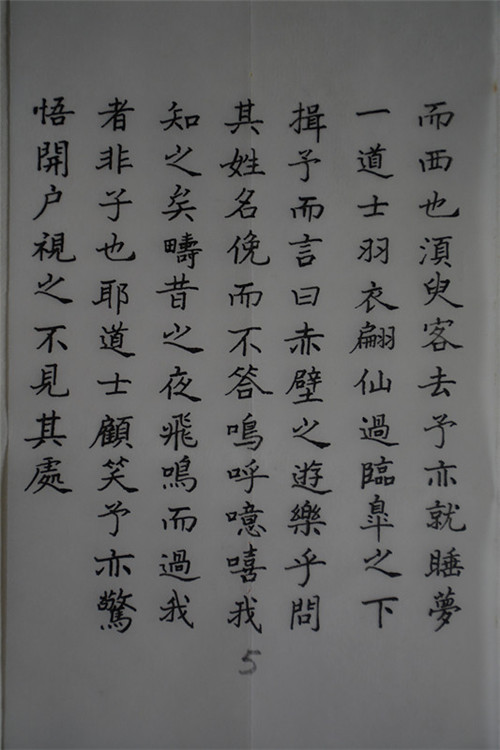 而西也湏臾客去予亦就睡夢
一道士羽衣翩仙過臨皐之下
揖予而言曰赤壁之遊樂乎問
其姓名俛而不答嗚呼噫嘻我
知之矣疇昔之夜飛鳴而過我
者非子也耶道士顧笑予亦驚
悟開户視之不見其處
5